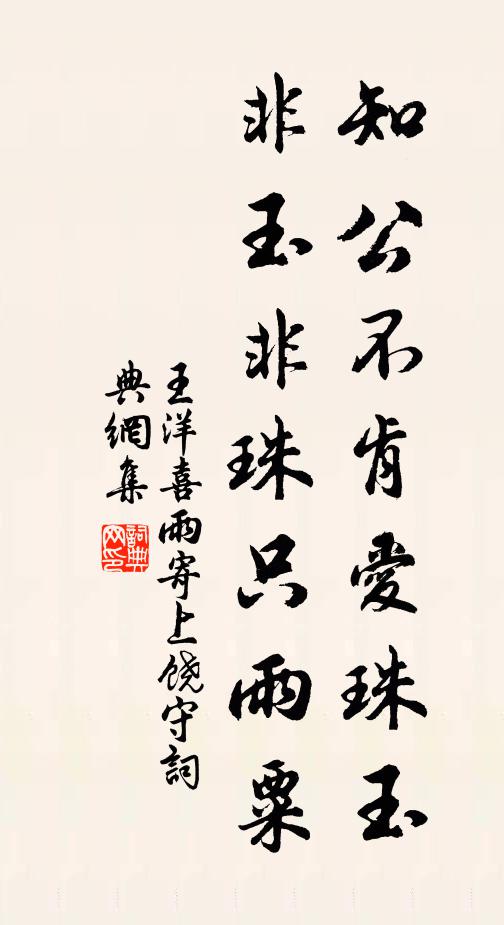 知公不肯愛珠玉
非玉非珠只雨粟
王洋喜雨寄上饶守詞
典網集
詞典網印